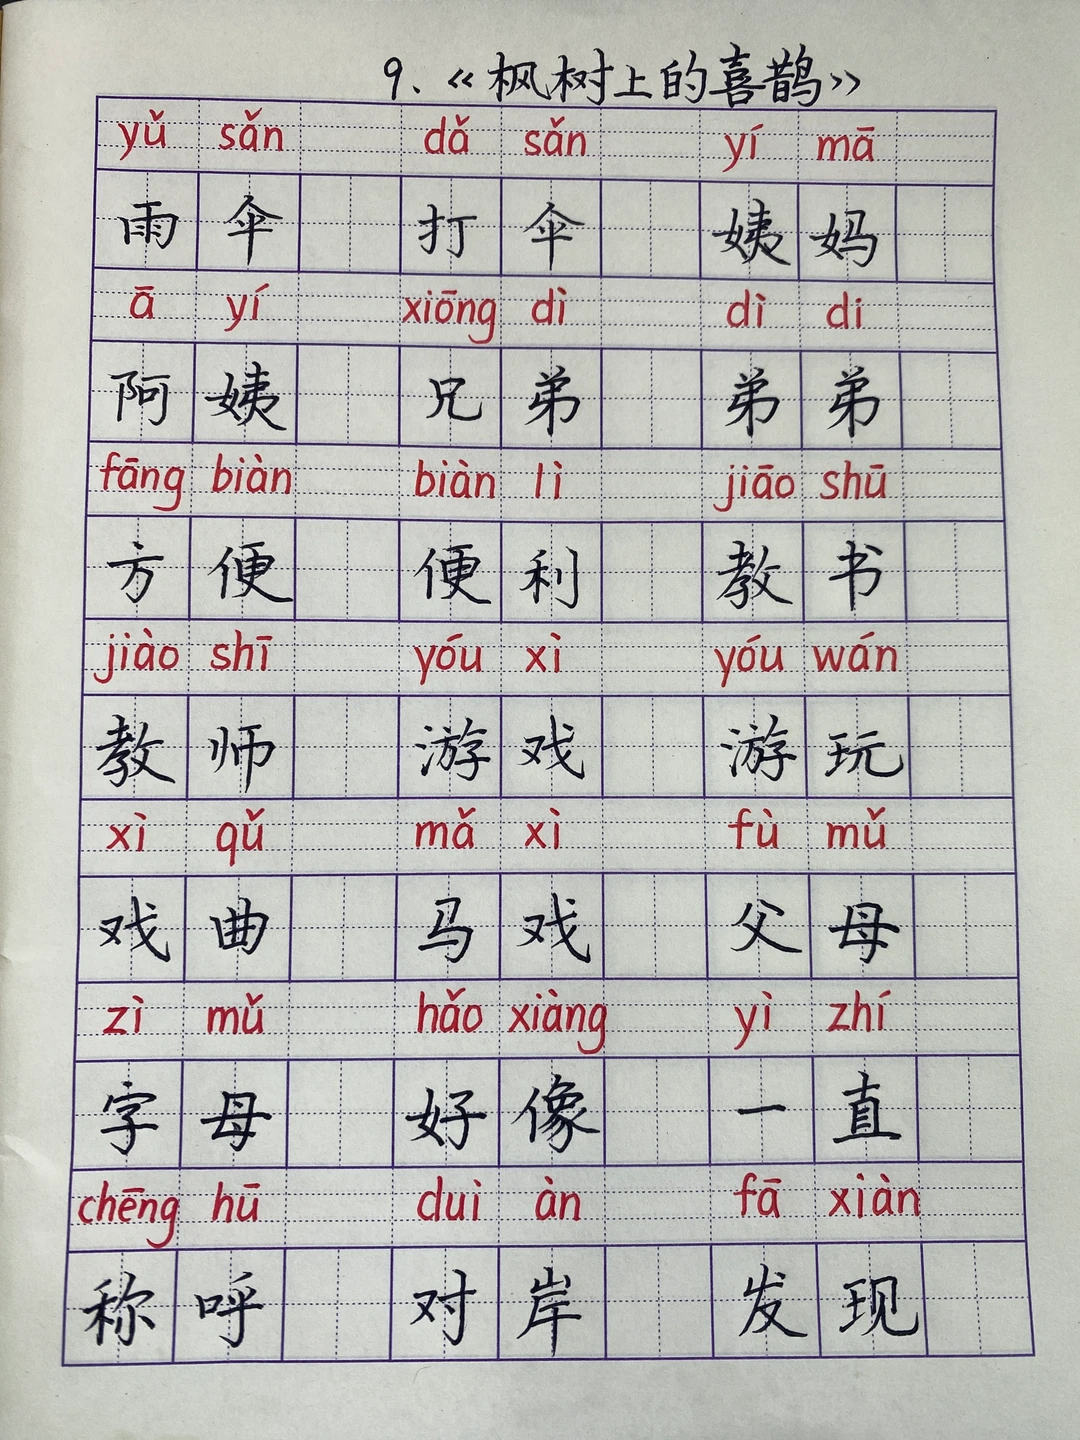 9.《枫树上的喜鹊》
yǔ sǎn dǎ sǎn yí mā
雨伞 打伞 姨妈
ā yí xiōng dì dì di
阿姨 兄弟 弟弟
fāng biàn biàn lì jiāo shū
方便 便利 教书
jiào shī yóu xì yóu wán
教师 游戏 游玩
xì qǔ mǎ xì fù mǔ
戏曲 马戏 父母
zì mǔ hǎo xiàng yì zhí
字母 好像 一直
chēng hū duì àn fā xiàn
称呼 对岸 发现